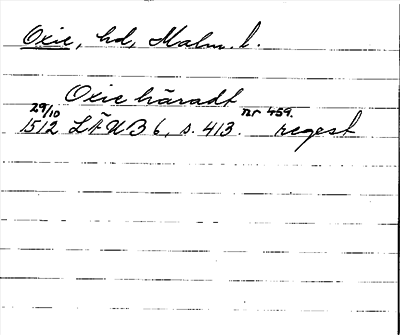 Oxie, hd, Malm. l.
Oxie häradt
29/10 nr 459.
1512 LÄUB 6, s. 413. regest